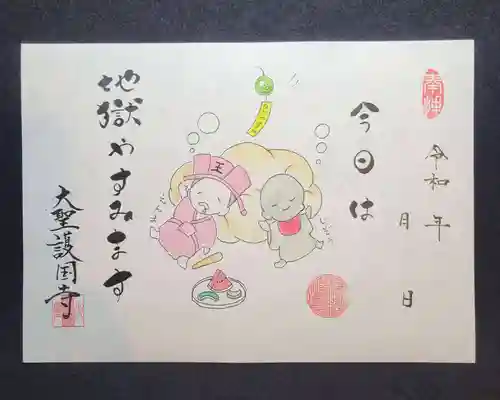 奉拝
令和 年
月 日
今日は
王
地獄やすみます
大聖護国寺